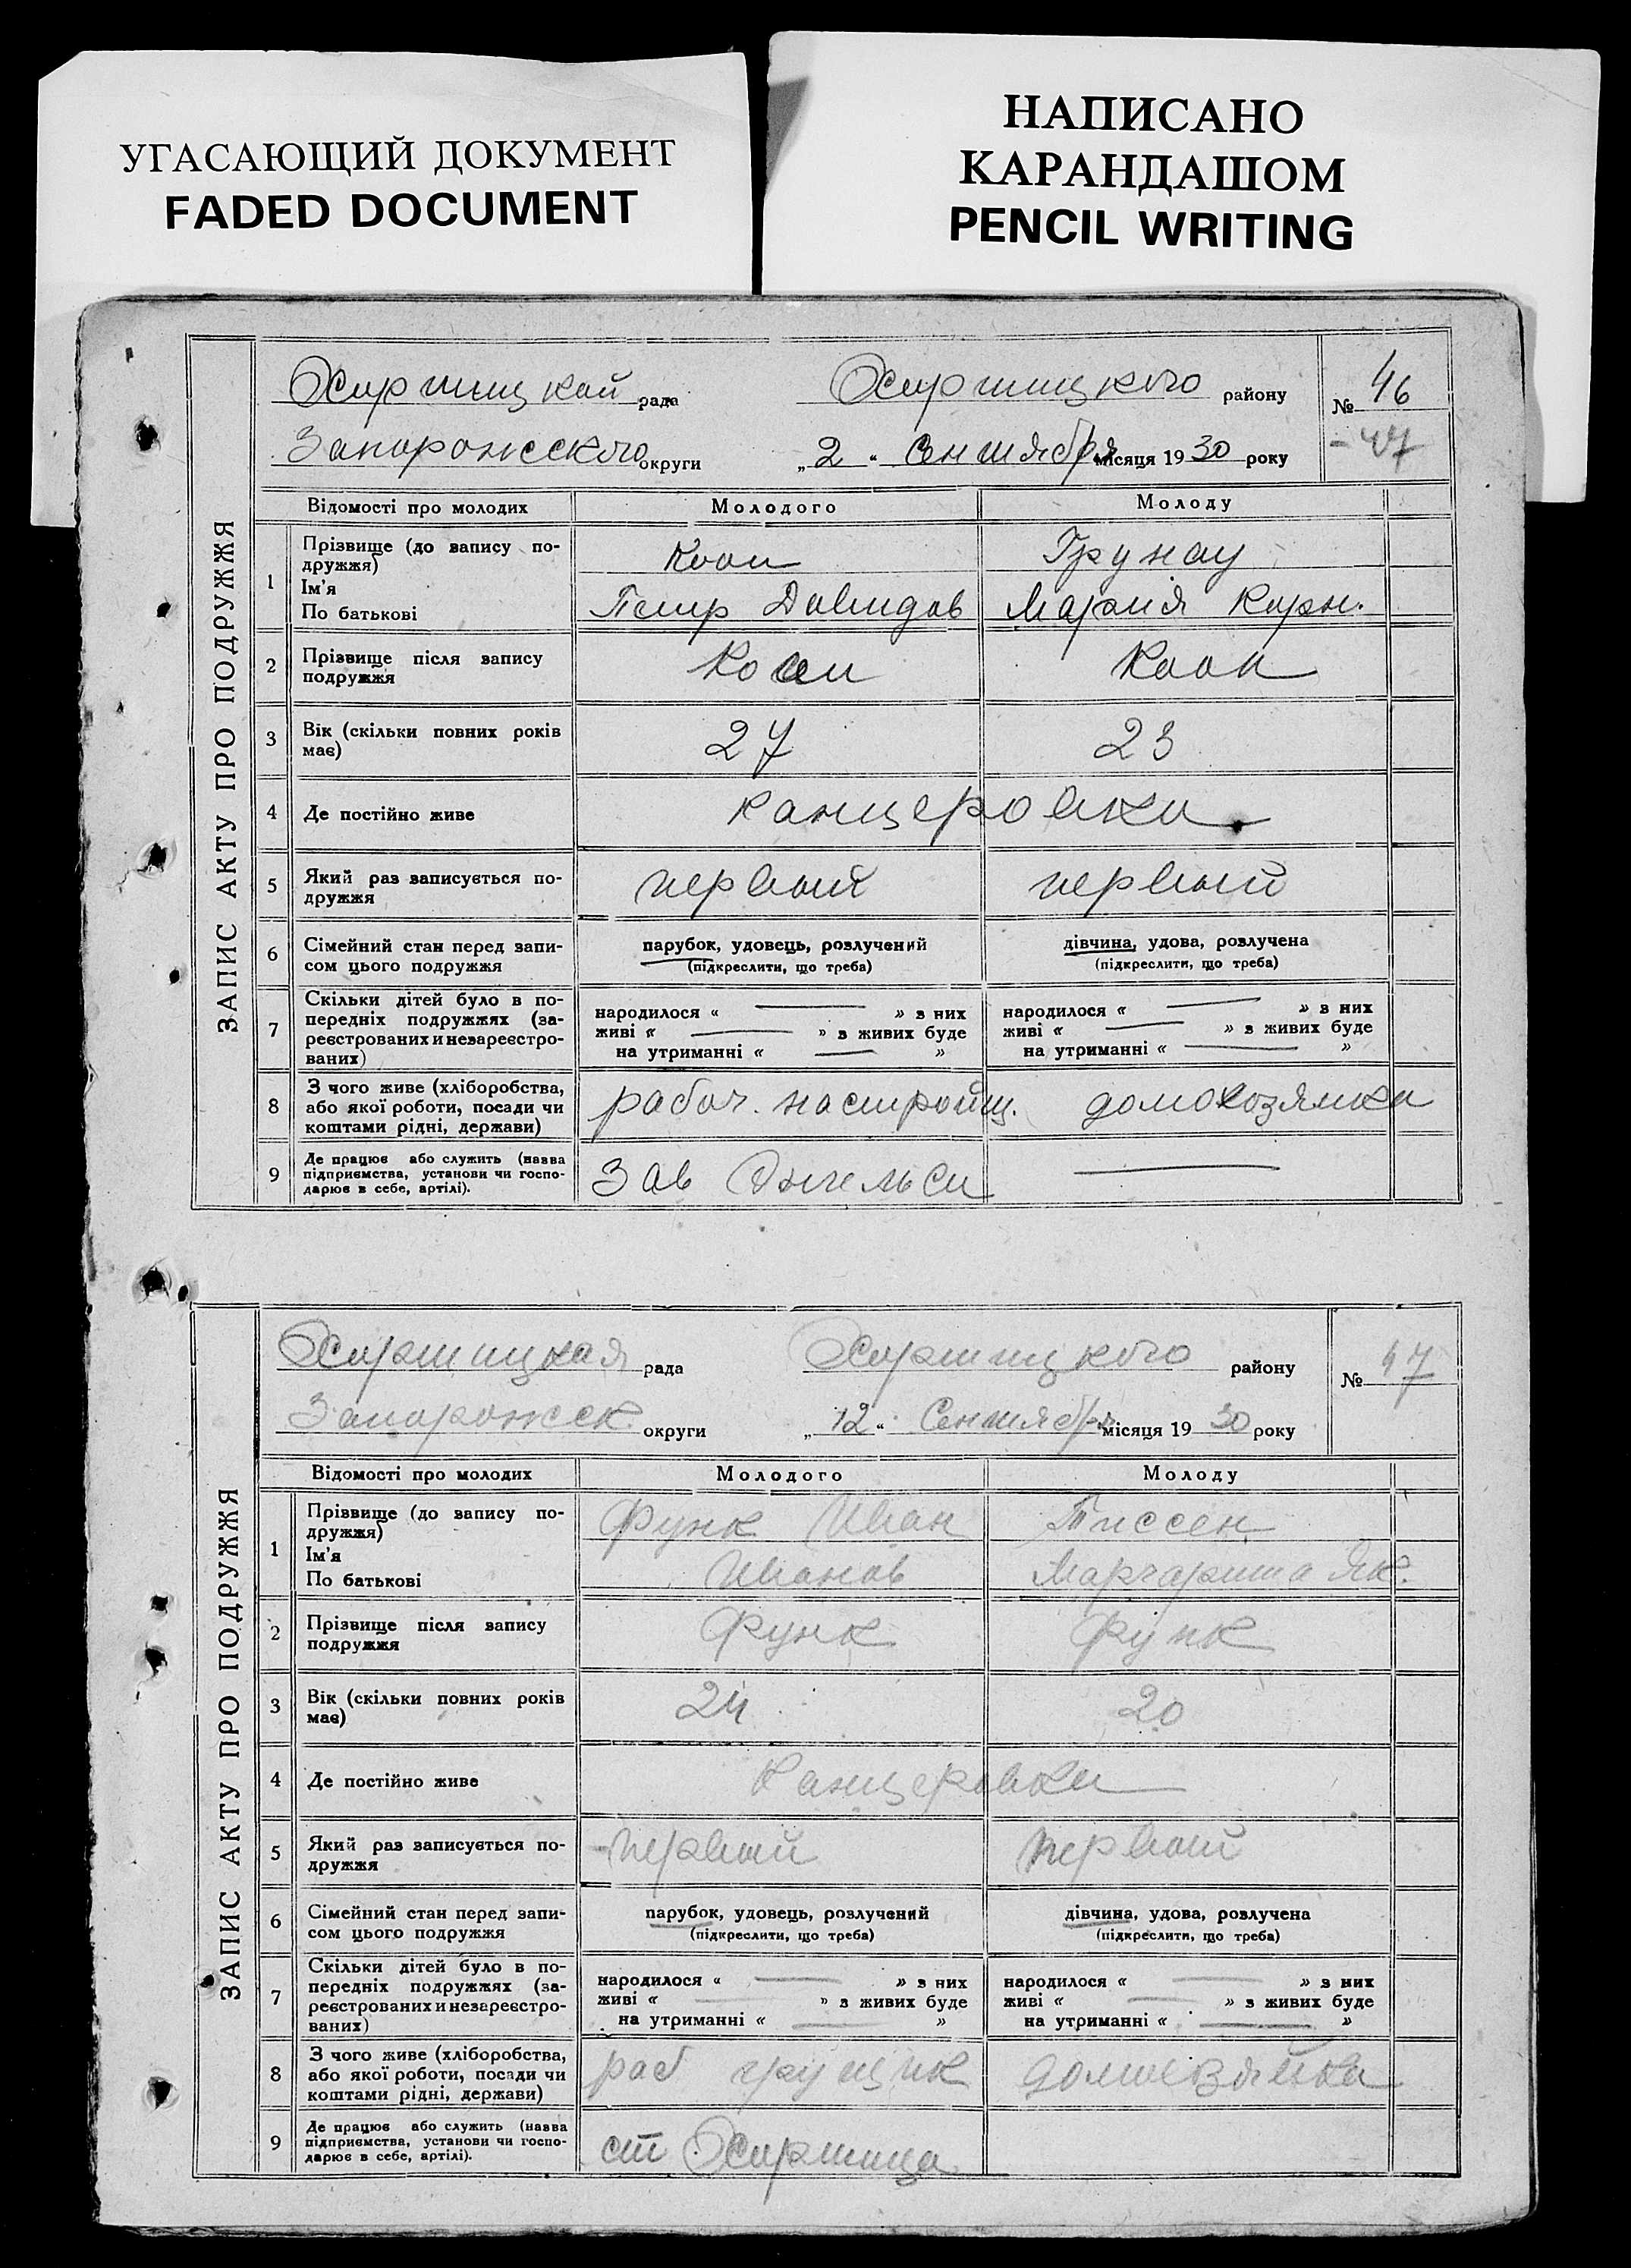 УГАСАЮЩИЙ ДОКУМЕНТ
FADED DOCUMENT
НАПИСАНО
КАРАНДАШОМ
PENCIL WRITING
ЗАПИС АКТУ ПРО ПОДРУЖЖЯ
Хортицкой рада Хортицкого району № 46
Запорожского округи „2“ Сентября місяця 1930 року - 47
Відомості про молодих Молодого Молоду
1 Прізвище (до запису по-
дружжя) Кооп Грунау
Ім'я
По батькові Петр Давидов Мария Корн.
2 Прізвище після запису
подружжя Кооп Кооп
3 Вік (скільки повних років
має) 27 23
4 Де постійно живе Канцеровка
5 Який раз записується по-
дружжя первый первый
6 Сімейний стан перед запи-
сом цього подружжя парубок, удовець, розлучений дівчина, удова, розлучена
(підкреслити, що треба) (підкреслити, що треба)
7 Скільки дітей було в по-
передніх подружжях (за-
реєстрованих и незареєстро-
ваних) народилося « — » з них народилося « — » з них
живі « — » з живих буде живі « — » з живих буде
на утриманні « — » на утриманні « — »
8 З чого живе (хліборобства,
або якої роботи, посади чи
коштами рідні, держави) рабоч. домохозяйка
9 Де працює або служить (назва
підприємства, установи чи госпо-
дарює в себе, артілі). Зав Энгельса —
ЗАПИС АКТУ ПРО ПОДРУЖЖЯ
Хортицкая рада Хортицкого району № 47
Запорожск. округи „12“ Сентября місяця 1930 року
Відомості про молодих Молодого Молоду
1 Прізвище (до запису по-
дружжя) Функ Иван Тиссен
Ім'я
По батькові Иванов Маргарита Як.
2 Прізвище після запису
подружжя Функ Функ
3 Вік (скільки повних років
має) 24 20
4 Де постійно живе Канцеровка
5 Який раз записується по-
дружжя первый первый
6 Сімейний стан перед запи-
сом цього подружжя парубок, удовець, розлучений дівчина, удова, розлучена
(підкреслити, що треба) (підкреслити, що треба)
7 Скільки дітей було в по-
передніх подружжях (за-
реєстрованих и незареєстро-
ваних) народилося « — » з них народилося « — » з них
живі « — » з живих буде живі « — » з живих буде
на утриманні « — » на утриманні « — »
8 З чого живе (хліборобства,
або якої роботи, посади чи
коштами рідні, держави) раб грущик
9 Де працює або служить (назва
підприємства, установи чи госпо-
дарює в себе, артілі). ст Хортица